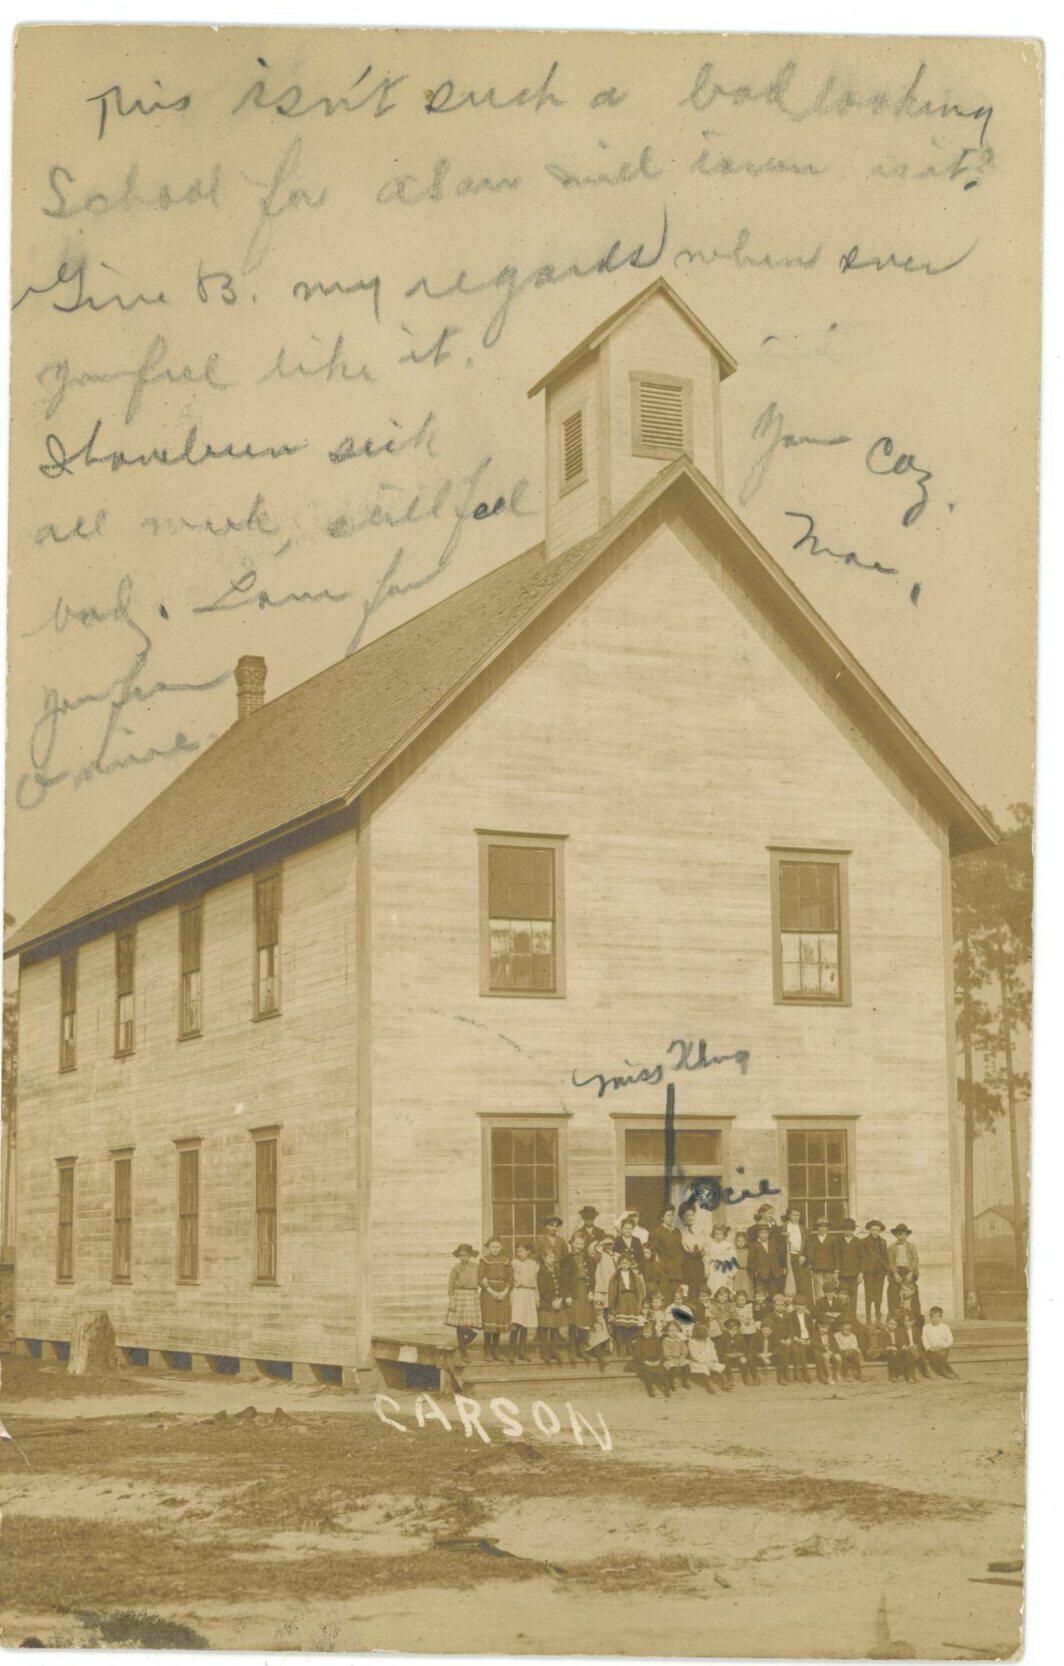 This isn't such a bad looking
School for a Saw mill town is it?
Give B. my regards when ever
you feel like it.
I have been sick
all week, still feel
bad. I am for
you from
a mire.
You Coz.
Mae,
Miss King
m
CARSON